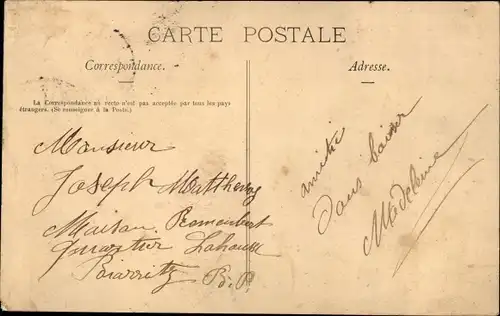 CARTE POSTALE
Correspondance.
Adresse.
La Correspondance au recto n'est pas acceptée par tous les pays
étrangers. (Se renseigner à la Poste.)
Monsieur
Joseph
Maison
quartier Lahouze
Biarritz B. P.
amitié
Sans baiser
Madeleine